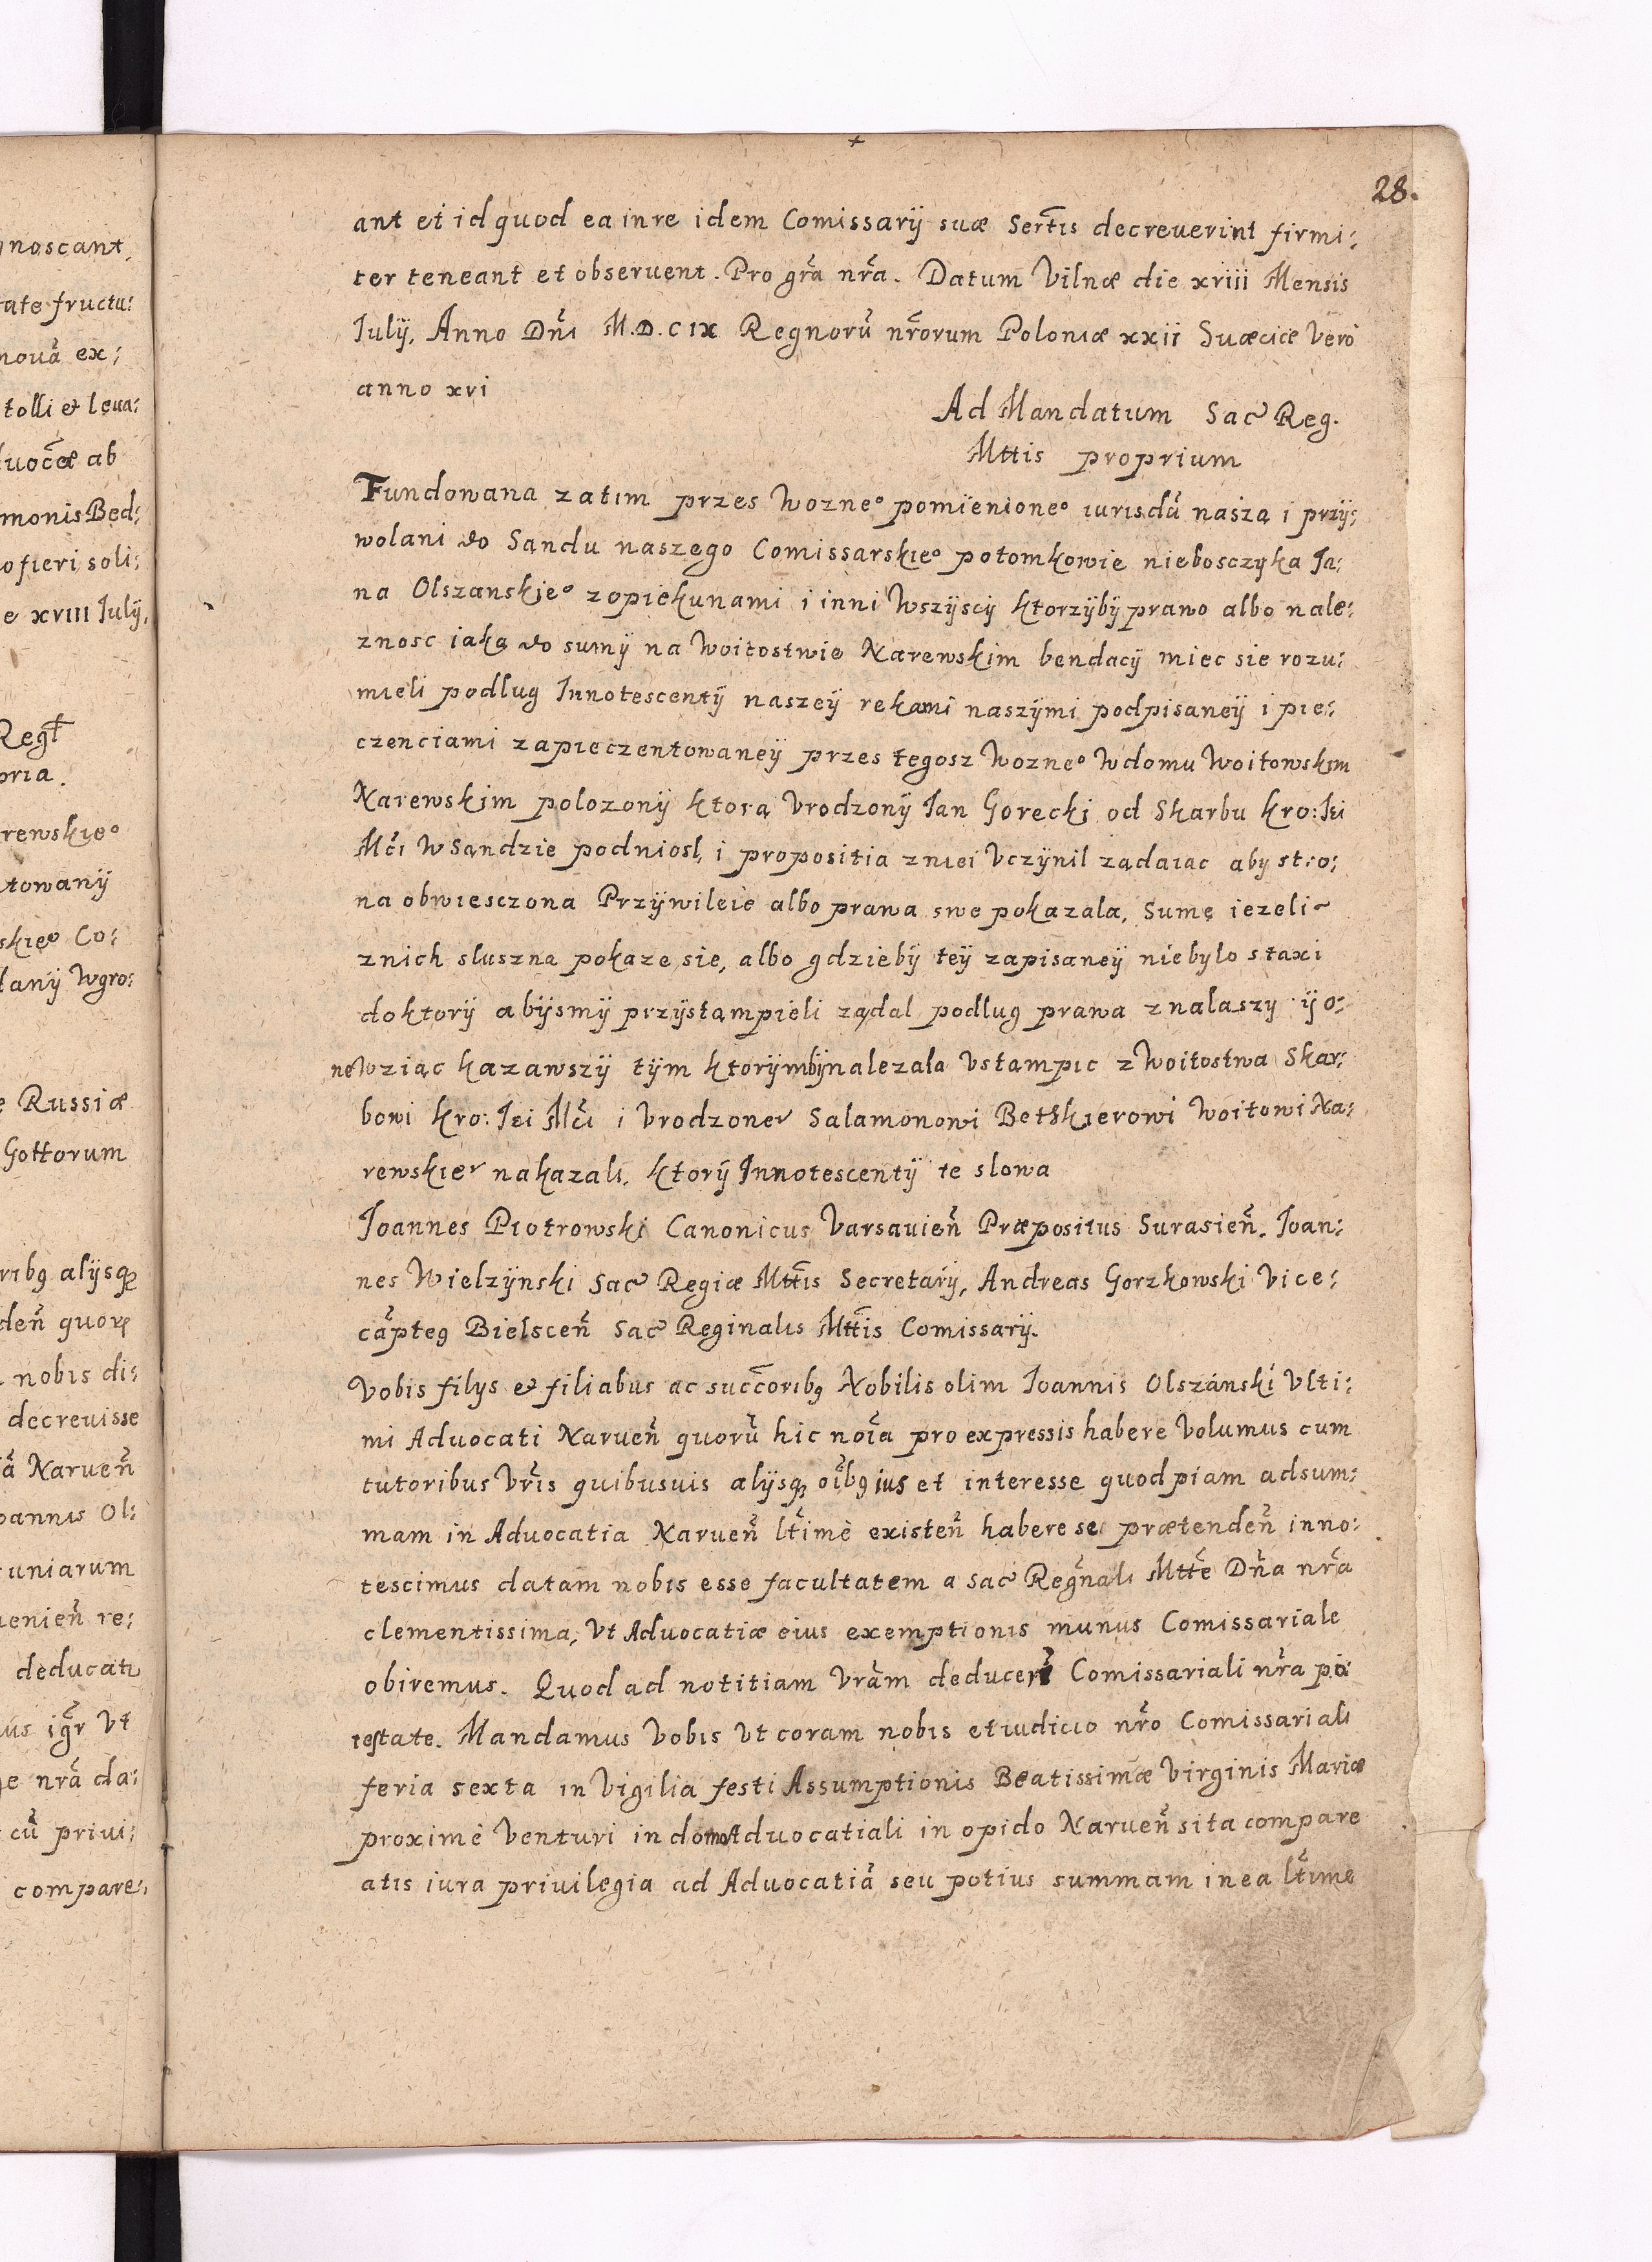 28.
ant et id quod ea in re idem Comissarij suæ Sertis decreuerint firmi:
ter teneant et obseruent. Pro gra nra. Datum Vilnæ die xviii Mensis
Iulij, Anno Dni M.D.CIX Regnorũ nrorum Poloniæ xxii Suæciæ Vero
anno xvi
Ad Mandatum Sac Reg.
Mttis proprium
Fundowana zatim przes Wozne° pomienione° iurisdã nasza i przÿ:
wolani do Sandu naszego Comissarskie° potomkowie niebosczyka Ja:
na Olszanskie° z opiekunami i inni Wszÿscÿ ktorzÿbÿ prawo albo nale:
znosc iaką do sumÿ na Woitostwie Narewskim bendacÿ miec sie rozu:
mieli podlug Innotescentÿ naszeÿ rekami naszÿmi podpisaneÿ i pie:
czenciami zapieczentowaneÿ przes tegosz Wozne° W domu Woitowskim
Narewskim polozonÿ ktorą Vrodzonÿ Jan Gorecki od Skarbu Kro: Jei
Mći W Sandzie podniosl, i propositia z niei Vczÿnil ządaiąc aby stro:
na obwiesczona Przÿwileie albo prawa swe pokazala, Sumę iezeli~
z nich sluszna pokaze sie, albo gdziebÿ teÿ zapisaneÿ niebylo staxi
do ktorÿ abÿsmÿ przÿstąmpieli ządal podlug prawa znalaszy ÿ o:
ne Wziąc kazawszÿ tÿm ktorÿmbÿ nalezala Vstampic z Woitostwa Skar:
bowi Kro: Jei Mći i Vrodzoner Salamonowi Betkierowi Woitowi Na:
rewskier nakazali, ktorÿ Innotescentÿ te slowa
Joannes Piotrowski Canonicus Varsauieñ Præpositus Surasieñ. Joan:
nes Wielzÿnski Sac Regiæ Mttis Secretarÿ, Andreas Gorzkowski Vice:
capteg Bielsceñ Sac Reginalis Mttis Comissarÿ.
Vobis filys et filiabus ac succoribg Nobilis olim Joannis Olszánski Vlti:
mi Aduocati Narueñ quorũ hic noia pro expressis habere Volumus cum
tutoribus Vris quibusuis alÿsq oibg ius et interesse quodpiam ad sum:
mam in Aduocatia Narueñ ltime existeñ habere se prætendeñ inno:
tescimus datam nobis esse facultatem a Sac Regnali Mtte Dña nra
clementissima, Vt Aduocatiæ eius exemptionis munus Comissariale
obiremus. Quod ad notitiam Vram deducen Comissariali nra po:
testate. Mandamus Vobis Vt coram nobis et iudicio nro Comissariali
feria sexta in Vigilia festi Assumptionis Beatissimæ Virginis Mariæ
proximè Venturi in domo Aduocatiali in opido Narueñ sita compare
atis iura priuilegia ad Aduocatiã seu potius summam in ea ltime